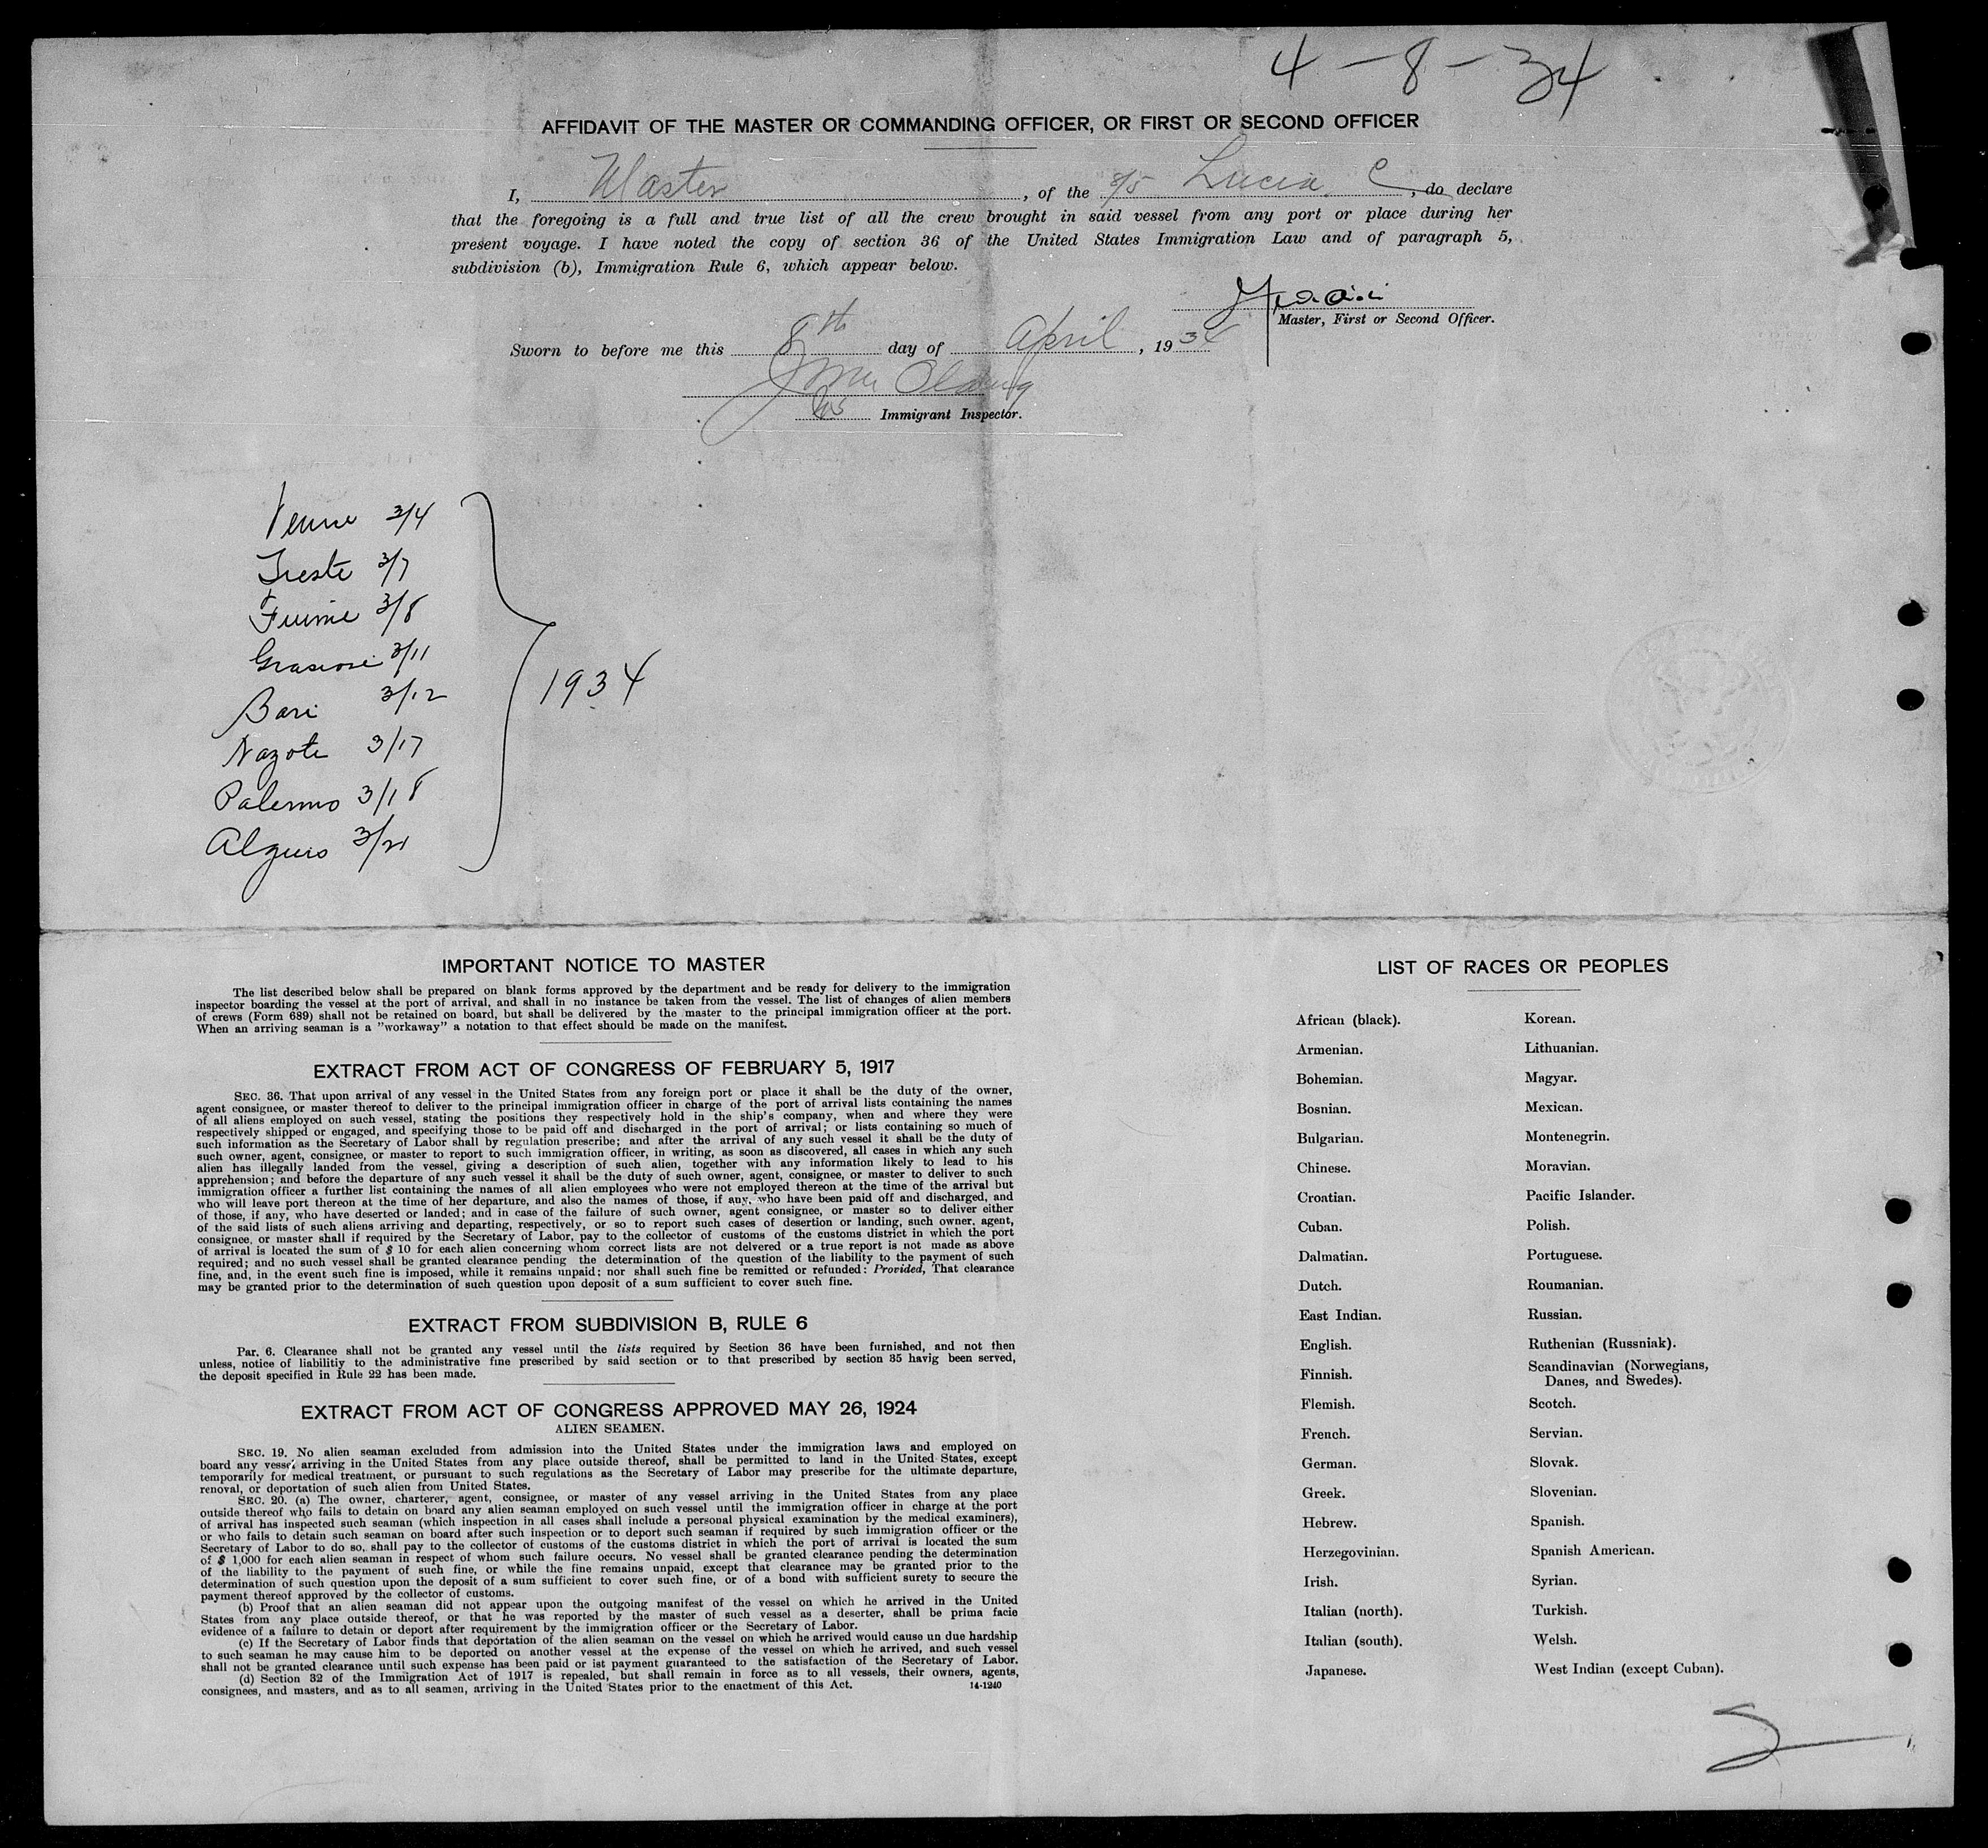 4-8-34
AFFIDAVIT OF THE MASTER OR COMMANDING OFFICER, OR FIRST OR SECOND OFFICER
I, Master, of the S/S Lucia C, do declare
that the foregoing is a full and true list of all the crew brought in said vessel from any port or place during her
present voyage. I have noted the copy of section 36 of the United States Immigration Law and of paragraph 5,
subdivision (b), Immigration Rule 6, which appear below.
Master, First or Second Officer.
Sworn to before me this 8th day of April, 1934
Immigrant Inspector.
Venice 3/4
Trieste 3/7
Fiume 3/8
3/11
Bari 3/12
3/17
Palermo 3/18
3/21
1934
IMPORTANT NOTICE TO MASTER
The list described below shall be prepared on blank forms approved by the department and be ready for delivery to the immigration
inspector boarding the vessel at the port of arrival, and shall in no instance be taken from the vessel. The list of changes of alien members
of crews (Form 689) shall not be retained on board, but shall be delivered by the master to the principal immigration officer at the port.
When an arriving seaman is a "workaway" a notation to that effect should be made on the manifest.
EXTRACT FROM ACT OF CONGRESS OF FEBRUARY 5, 1917
SEC. 36. That upon arrival of any vessel in the United States from any foreign port or place it shall be the duty of the owner,
agent consignee, or master thereof to deliver to the principal immigration officer in charge of the port of arrival lists containing the names
of all aliens employed on such vessel, stating the positions they respectively hold in the ship's company, when and where they were
respectively shipped or engaged, and specifying those to be paid off and discharged in the port of arrival; or lists containing so much of
such information as the Secretary of Labor shall by regulation prescribe; and after the arrival of any such vessel it shall be the duty of
such owner, agent, consignee, or master to report to such immigration officer, in writing, as soon as discovered, all cases in which any such
alien has illegally landed from the vessel, giving a description of such alien, together with any information likely to lead to his
apprehension; and before the departure of any such vessel it shall be the duty of such owner, agent, consignee, or master to deliver to such
immigration officer a further list containing the names of all alien employees who were not employed thereon at the time of the arrival but
who will leave port thereon at the time of her departure, and also the names of those, if any, who have been paid off and discharged, and
of those, if any, who have deserted or landed; and in case of the failure of such owner, agent consignee, or master so to deliver either
of the said lists of such aliens arriving and departing, respectively, or so to report such cases of desertion or landing, such owner, agent,
consignee, or master shall if required by the Secretary of Labor, pay to the collector of customs of the customs district in which the port
of arrival is located the sum of $ 10 for each alien concerning whom correct lists are not delvered or a true report is not made as above
required; and no such vessel shall be granted clearance pending the determination of the question of the liability to the payment of such
fine, and, in the event such fine is imposed, while it remains unpaid; nor shall such fine be remitted or refunded: Provided, That clearance
may be granted prior to the determination of such question upon deposit of a sum sufficient to cover such fine.
EXTRACT FROM SUBDIVISION B, RULE 6
Par. 6. Clearance shall not be granted any vessel until the lists required by Section 36 have been furnished, and not then
unless, notice of liabilitiy to the administrative fine prescribed by said section or to that prescribed by section 35 havig been served,
the deposit specified in Rule 22 has been made.
EXTRACT FROM ACT OF CONGRESS APPROVED MAY 26, 1924
ALIEN SEAMEN.
SEC. 19. No alien seaman excluded from admission into the United States under the immigration laws and employed on
board any vessel arriving in the United States from any place outside thereof, shall be permitted to land in the United States, except
temporarily for medical treatment, or pursuant to such regulations as the Secretary of Labor may prescribe for the ultimate departure,
renoval, or deportation of such alien from United States.
SEC. 20. (a) The owner, charterer, agent, consignee, or master of any vessel arriving in the United States from any place
outside thereof who fails to detain on board any alien seaman employed on such vessel until the immigration officer in charge at the port
of arrival has inspected such seaman (which inspection in all cases shall include a personal physical examination by the medical examiners),
or who fails to detain such seaman on board after such inspection or to deport such seaman if required by such immigration officer or the
Secretary of Labor to do so, shall pay to the collector of customs of the customs district in which the port of arrival is located the sum
of $ 1,000 for each alien seaman in respect of whom such failure occurs. No vessel shall be granted clearance pending the determination
of the liability to the payment of such fine, or while the fine remains unpaid, except that clearance may be granted prior to the
determination of such question upon the deposit of a sum sufficient to cover such fine, or of a bond with sufficient surety to secure the
payment thereof approved by the collector of customs.
(b) Proof that an alien seaman did not appear upon the outgoing manifest of the vessel on which he arrived in the United
States from any place outside thereof, or that he was reported by the master of such vessel as a deserter, shall be prima facie
evidence of a failure to detain or deport after requirement by the immigration officer or the Secretary of Labor.
(c) If the Secretary of Labor finds that deportation of the alien seaman on the vessel on which he arrived would cause un due hardship
to such seaman he may cause him to be deported on another vessel at the expense of the vessel on which he arrived, and such vessel
shall not be granted clearance until such expense has been paid or ist payment guaranteed to the satisfaction of the Secretary of Labor.
(d) Section 32 of the Immigration Act of 1917 is repealed, but shall remain in force as to all vessels, their owners, agents,
consignees, and masters, and as to all seamen, arriving in the United States prior to the enactment of this Act. 14-1240
LIST OF RACES OR PEOPLES
African (black). Korean.
Armenian. Lithuanian.
Bohemian. Magyar.
Bosnian. Mexican.
Bulgarian. Montenegrin.
Chinese. Moravian.
Croatian. Pacific Islander.
Cuban. Polish.
Dalmatian. Portuguese.
Dutch. Roumanian.
East Indian. Russian.
English. Ruthenian (Russniak).
Finnish. Scandinavian (Norwegians,
Danes, and Swedes).
Flemish. Scotch.
French. Servian.
German. Slovak.
Greek. Slovenian.
Hebrew. Spanish.
Herzegovinian. Spanish American.
Irish. Syrian.
Italian (north). Turkish.
Italian (south). Welsh.
Japanese. West Indian (except Cuban).